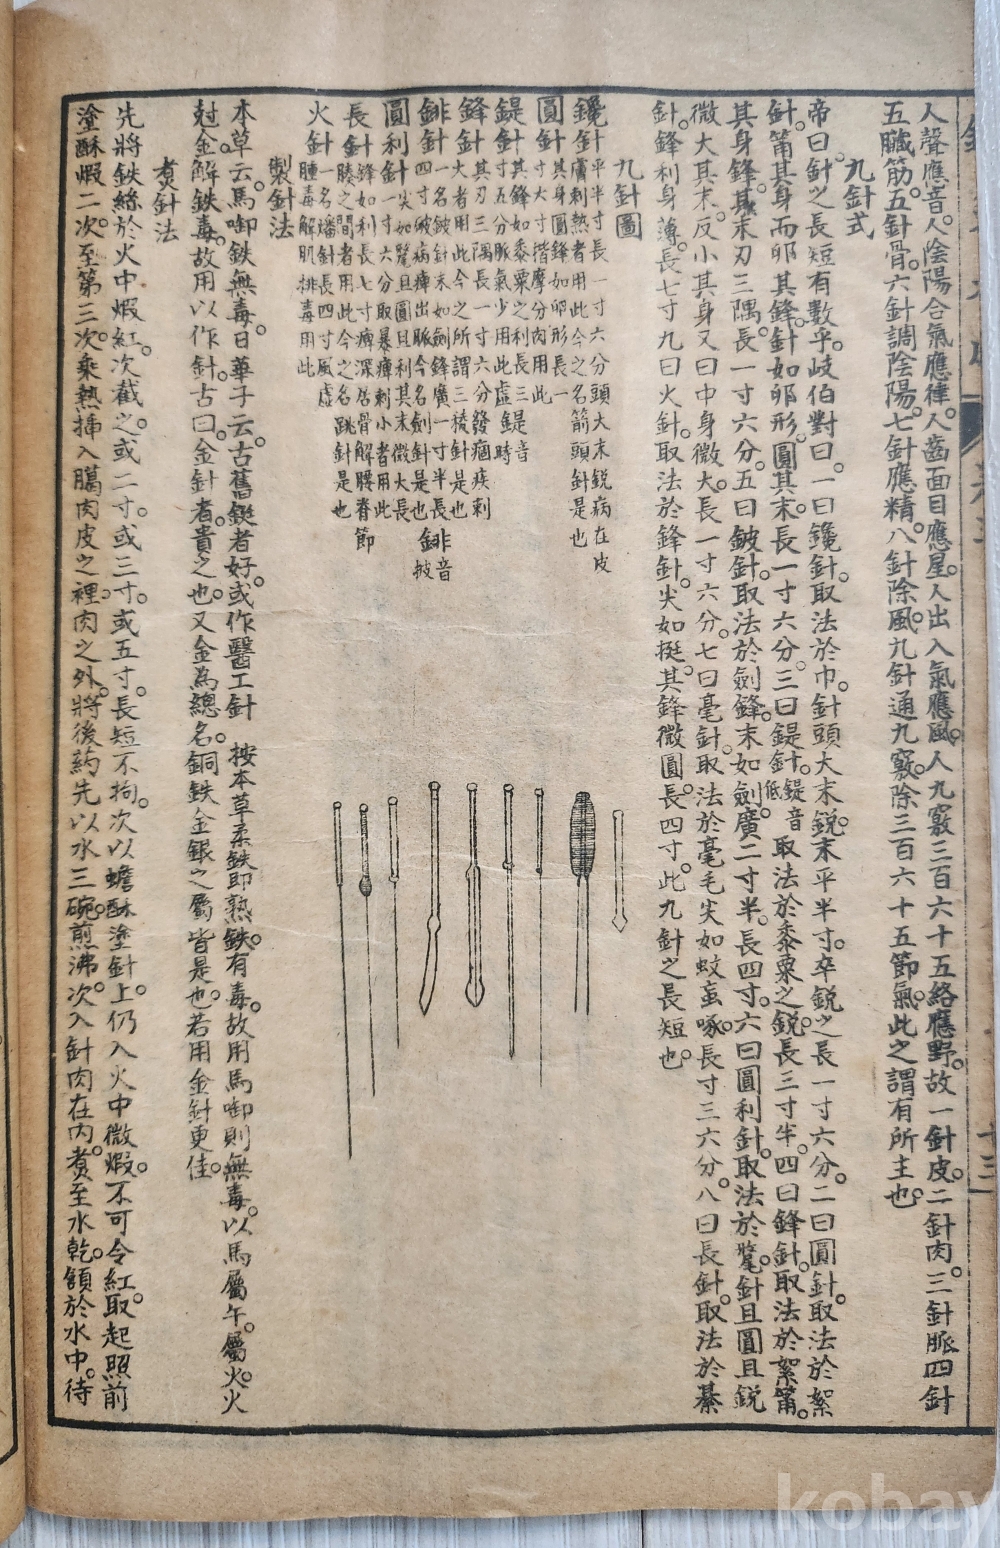 人聲應音。人陰陽合氣應律。人齒面目應星。人出入氣應風。人九竅三百六十五絡應野。故一針皮。二針肉。三針脈。四針
五臟筋。五針骨。六針調陰陽。七針應精。八針除風。九針通九竅。除三百六十五節氣。此之謂有所主也。
九針式
帝曰。針之長短有數乎。岐伯對曰。一曰鑱針。取法於巾。針頭大末銳。末平半寸。卒銳之長一寸六分。二曰圓針。取法於絮
針。筩其身而卵其鋒。針如卵形。圓其末。長一寸六分。三曰鍉針。鍉音低取法於黍粟之銳。長三寸半。四曰鋒針。取法於絮筩。
其身鋒。其末刃三隅。長一寸六分。五曰鈹針。取法於劍鋒。末如劍。廣二寸半。長四寸。六曰圓利針。取法於氂。針且圓且銳
微大其末。反小其身。又曰中身微大。長一寸六分。七曰毫針。取法於毫毛。尖如蚊虻喙。長寸三六分。八曰長針。取法於綦
針。鋒利身薄。長七寸。九曰火針。取法於鋒針。尖如挺。其鋒微圓。長四寸。此九針之長短也。
九針圖
鑱針平半寸長一寸六分頭大末銳病在皮
膚刺熱者用此今之名箭頭針是也
圓針其身圓鋒如卵形長一
寸大寸揩摩分肉用此
鍉針其鋒如黍粟之利長三鍉音
寸五分脈氣少用此虛鍉時
鋒針其刃三隅長一寸六分發痼疾刺
大者用此今之所謂三稜針是也
鈹針一名鈹針末如劍鋒廣一寸半長鈹音
四寸破病痺出膿今名劍針是也鈹
圓利針尖如氂且圓且利其末微大長
一寸六分取暴痺刺小者用此
長針鋒如利長七寸痺深居骨解腰脊節
腠之間者用此今之名跳針是也
火針一名燔針長四寸風虛
腫毒解肌排毒用此
製針法
本草云。馬啣鐵無毒。日華子云。古舊鋌者好。或作醫工針 按本草柔鉄即熟鉄。有毒。故用馬啣則無毒。以馬屬午。屬火。火
尅金。解鉄毒。故用以作針。古曰。金針者。貴之也。又金為總名。銅鉄金銀之屬皆是也。若用金針更佳。
煑針法
先將鉄絲於火中煆紅。次截之。或二寸。或三寸。或五寸。長短不拘。次以蟾酥塗針上。仍入火中微煆。不可令紅。取起照前
塗酥煆二次。次至第三次。乘熱揷入臈肉皮之裡。肉之外。將後葯先以水三碗煎沸。次入針肉在內。煑至水乾。傾於水中。待